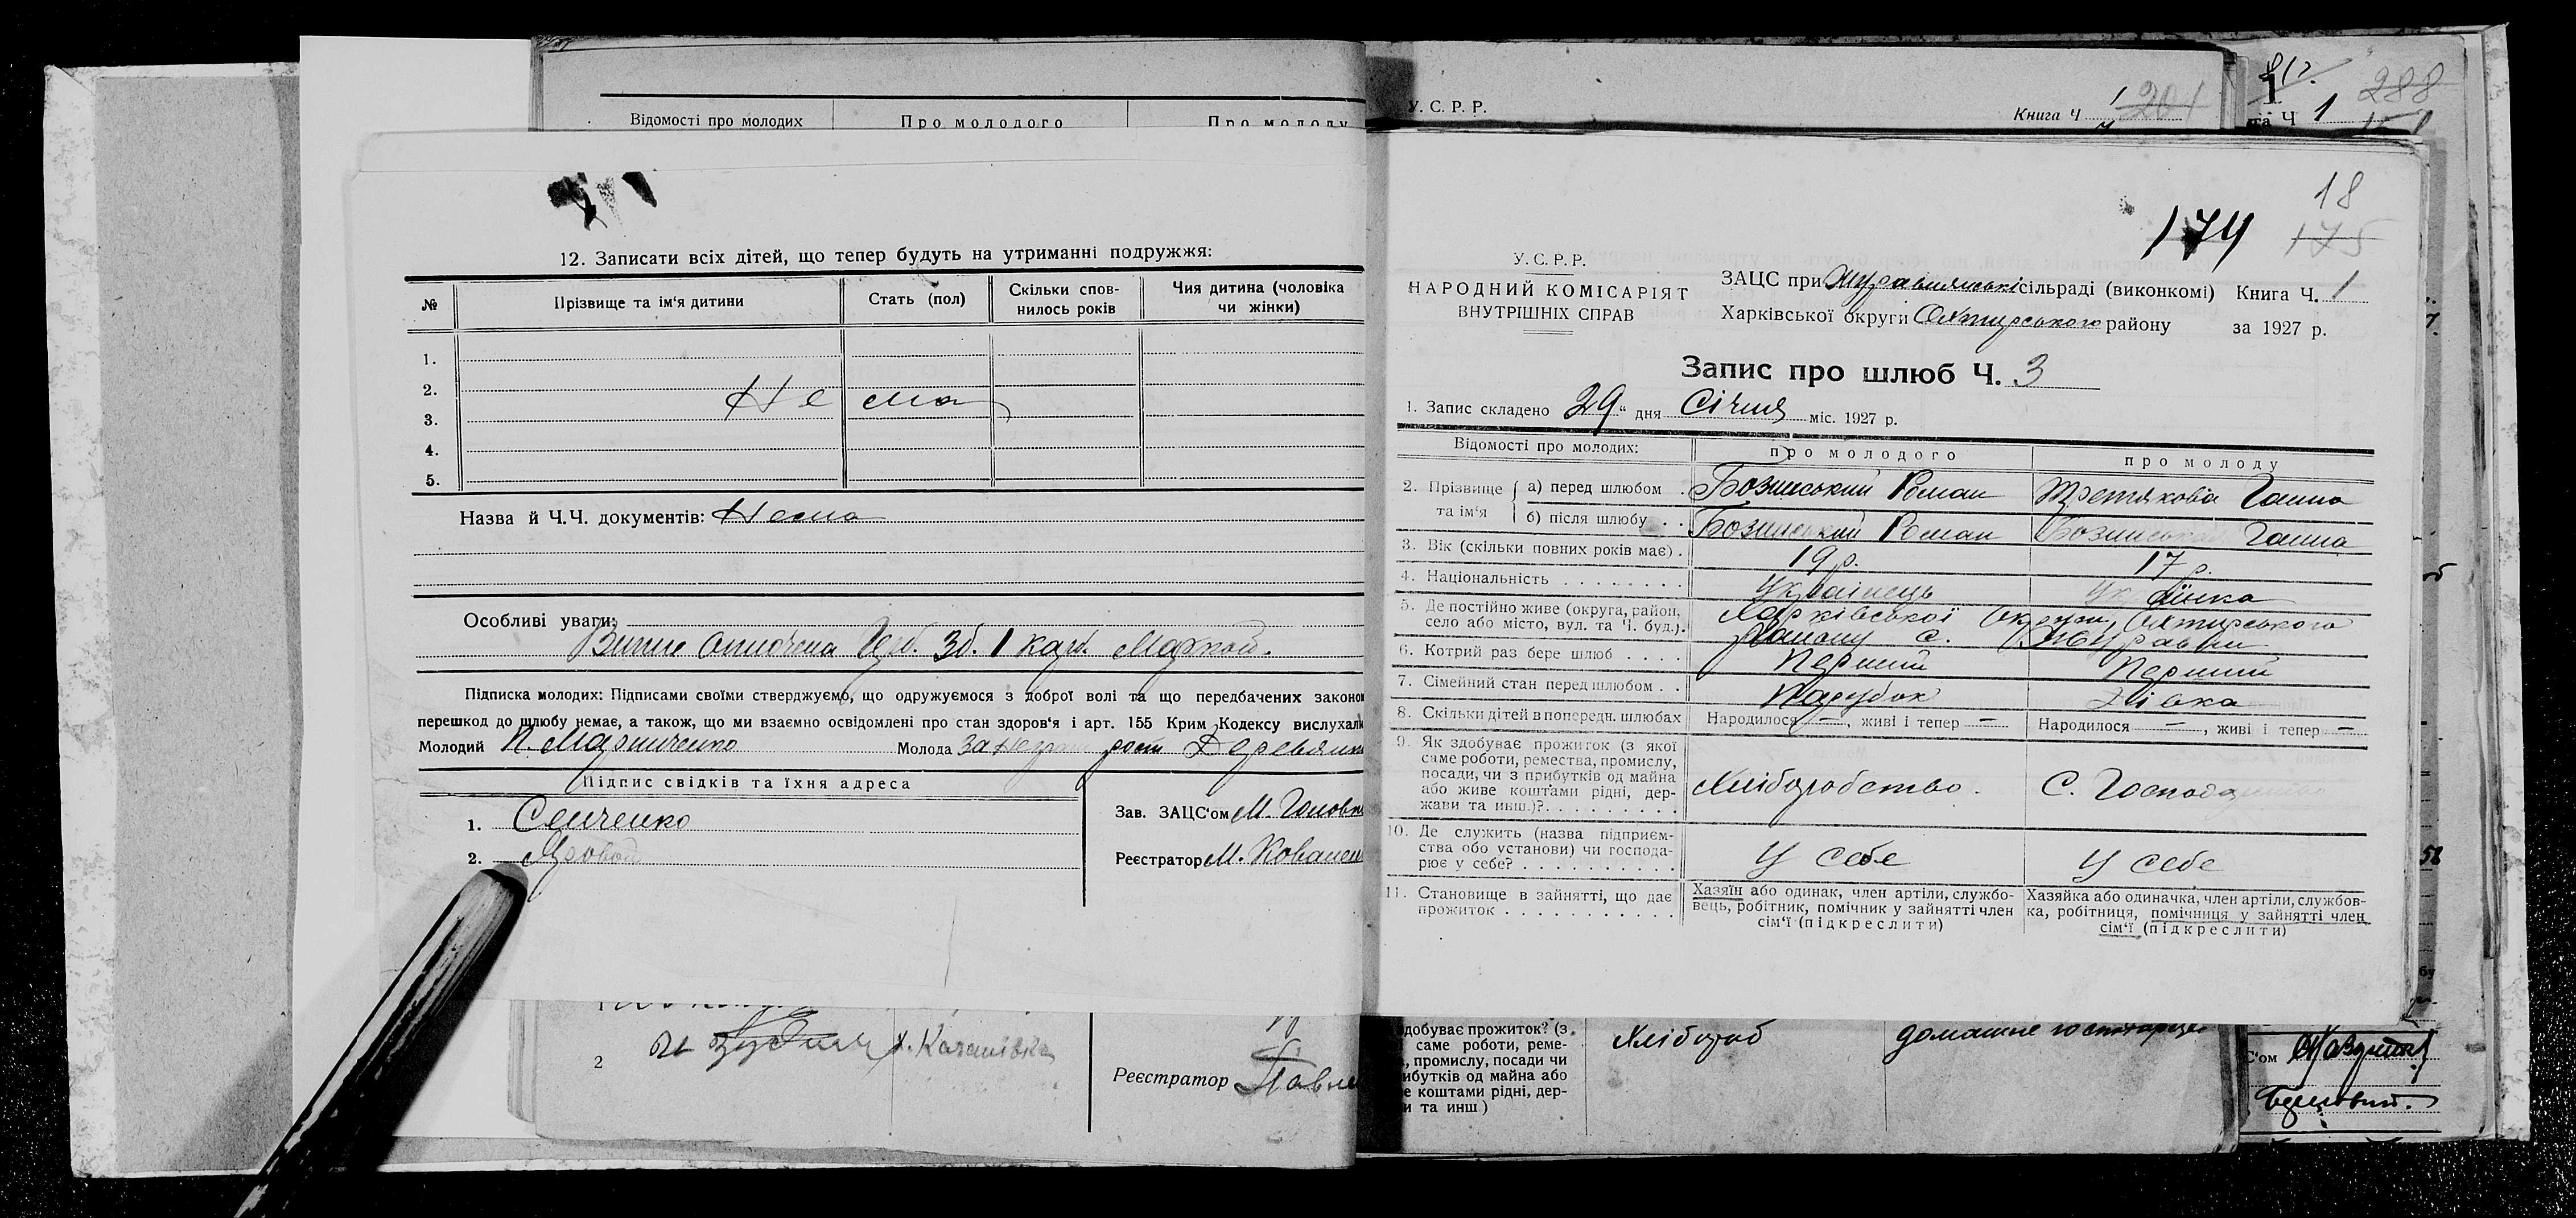 Відомості про молодих Про молодого Про молоду
12. Записати всіх дітей, що тепер будуть на утриманні подружжя:
№ Прізвище та ім'я дитини Стать (пол) Скільки спов-нилось років Чия дитина (чоловіка чи жінки)
1.
2.
Нема
3.
4.
5.
Назва й Ч.Ч. документів: Нема
Особливі уваги:
Зб. 1 карб. Маркой.
Підписка молодих: Підписами своїми стверджуємо, що одружуємося з доброї волі та що передбачених законом
перешкод до шлюбу немає, а також, що ми взаємно освідомлені про стан здоров'я і арт. 155 Крим Кодексу вислухали
Молодий П. Марниченко Молода за неграм рост Деревянк
Підпис свідків та їхня адреса
1. Сенченко
2. Яровой
Зав. ЗАЦС'ом М. Головк
Реєстратор М. Ковален
2 х. Качанівка
Реєстратор Павле
У. С. Р. Р.
Книга Ч 1 201
та Ч 1 288
18
174 175
У. С. Р. Р.
НАРОДНИЙ КОМІСАРІЯТ
ВНУТРІШНІХ СПРАВ
ЗАЦС при Журавлянські сільраді (виконкомі) Книга Ч. 1
Харківської округи Охтирського району за 1927 р.
Запис про шлюб Ч. 3
1. Запис складено 29 " дня Січня міс. 1927 р.
Відомості про молодих: про молодого про молоду
2. Прізвище та ім'я а) перед шлюбом . Бозинський Роман Третякова Ганна
б) після шлюбу . . Бозинський Роман Бозинська Ганна
3. Вік (скільки повних років має) . 19 р. 17 р.
4. Національність . . . . . . . . Українець Українка
5. Де постійно живе (округа, район, Харківської Округи, Охтирського
село або місто, вул. та Ч. буд.). Району с. Журавни
6. Котрий раз бере шлюб . . . . Перший Перший
7. Сімейний стан перед шлюбом . . Парубок Дівка
8. Скільки дітей в попередн. шлюбах Народилося —, живі і тепер — Народилося —, живі і тепер —
9. Як здобуває прожиток (з якої
саме роботи, ремества, промислу,
посади, чи з прибутків од майна
або живе коштами рідні, дер-
жави та инш.)? . . . . . . . . . Хліборобство. С. Господарство
10. Де служить (назва підприєм-
ства обо установи) чи господа-
рює у себе? . . . . . . . . . . У себе У себе
11. Становище в зайнятті, що дає
прожиток . . . . . . . . . . . .
Хазяїн або одинак, член артілі, службо-
вець, робітник, помічник у зайнятті член
сім'ї (підкреслити)
Хазяйка або одиначка, член артілі, службов-
ка, робітниця, помічниця у зайнятті член
сім'ї (підкреслити)
добуває прожиток? (з Хлібороб домашнє
саме роботи, реме-
, промислу, посади чи
ибутків од майна або
е коштами рідні, дер-
и та инш)
С'ом